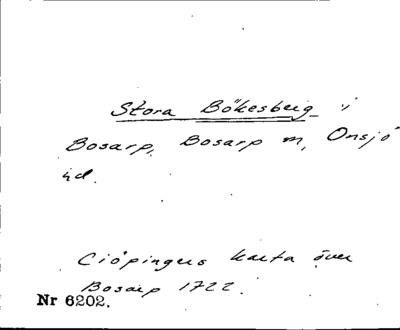 Stora Bökesberg i
Bosarp, Bosarp m, Onsjö
hd.
Ciöpingers karta över
Bosarp 1722.
Nr 6202.